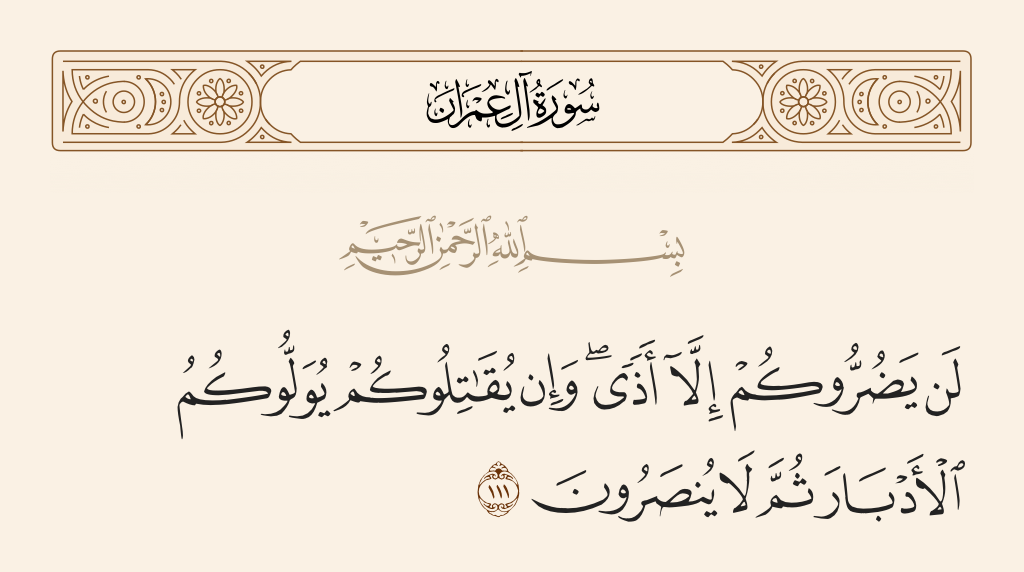 سُورَةُ آلِ عِمْرَان
بِسْمِ ٱللَّهِ ٱلرَّحْمَٰنِ ٱلرَّحِيمِ
لَن يَضُرُّوكُمْ إِلَّآ أَذًى ۖ وَإِن يُقَٰتِلُوكُمْ يُوَلُّوكُمُ
ٱلْأَدْبَارَ ثُمَّ لَا يُنصَرُونَ ١١١